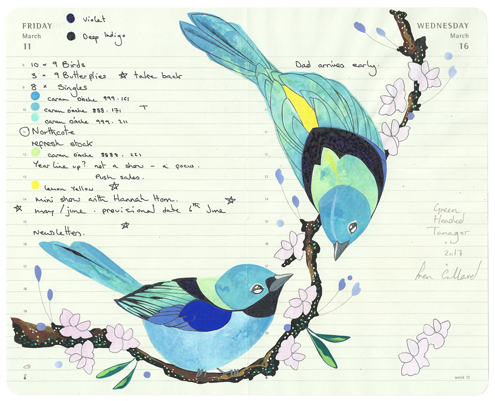 FRIDAY
March
11
Violet
Deep Indigo
WEDNESDAY
March
16
Dad arrives early.
10 x 9 Birds
3 x 9 Butterflies ☆ take back
8 x Singles
caran d'ache 999.161
caran d'ache 888.171 T
caran d'ache 999.211
Northcote
refresh stock
caran d'ache 8888.221
Year line up? not a show - a focus.
Push sales.
lemon Yellow ☆
mini show with Hannah ☆
☆ may/june. provisional date 6th June
newsletter. ☆
Green
Headed
Tanager
2017
week 11